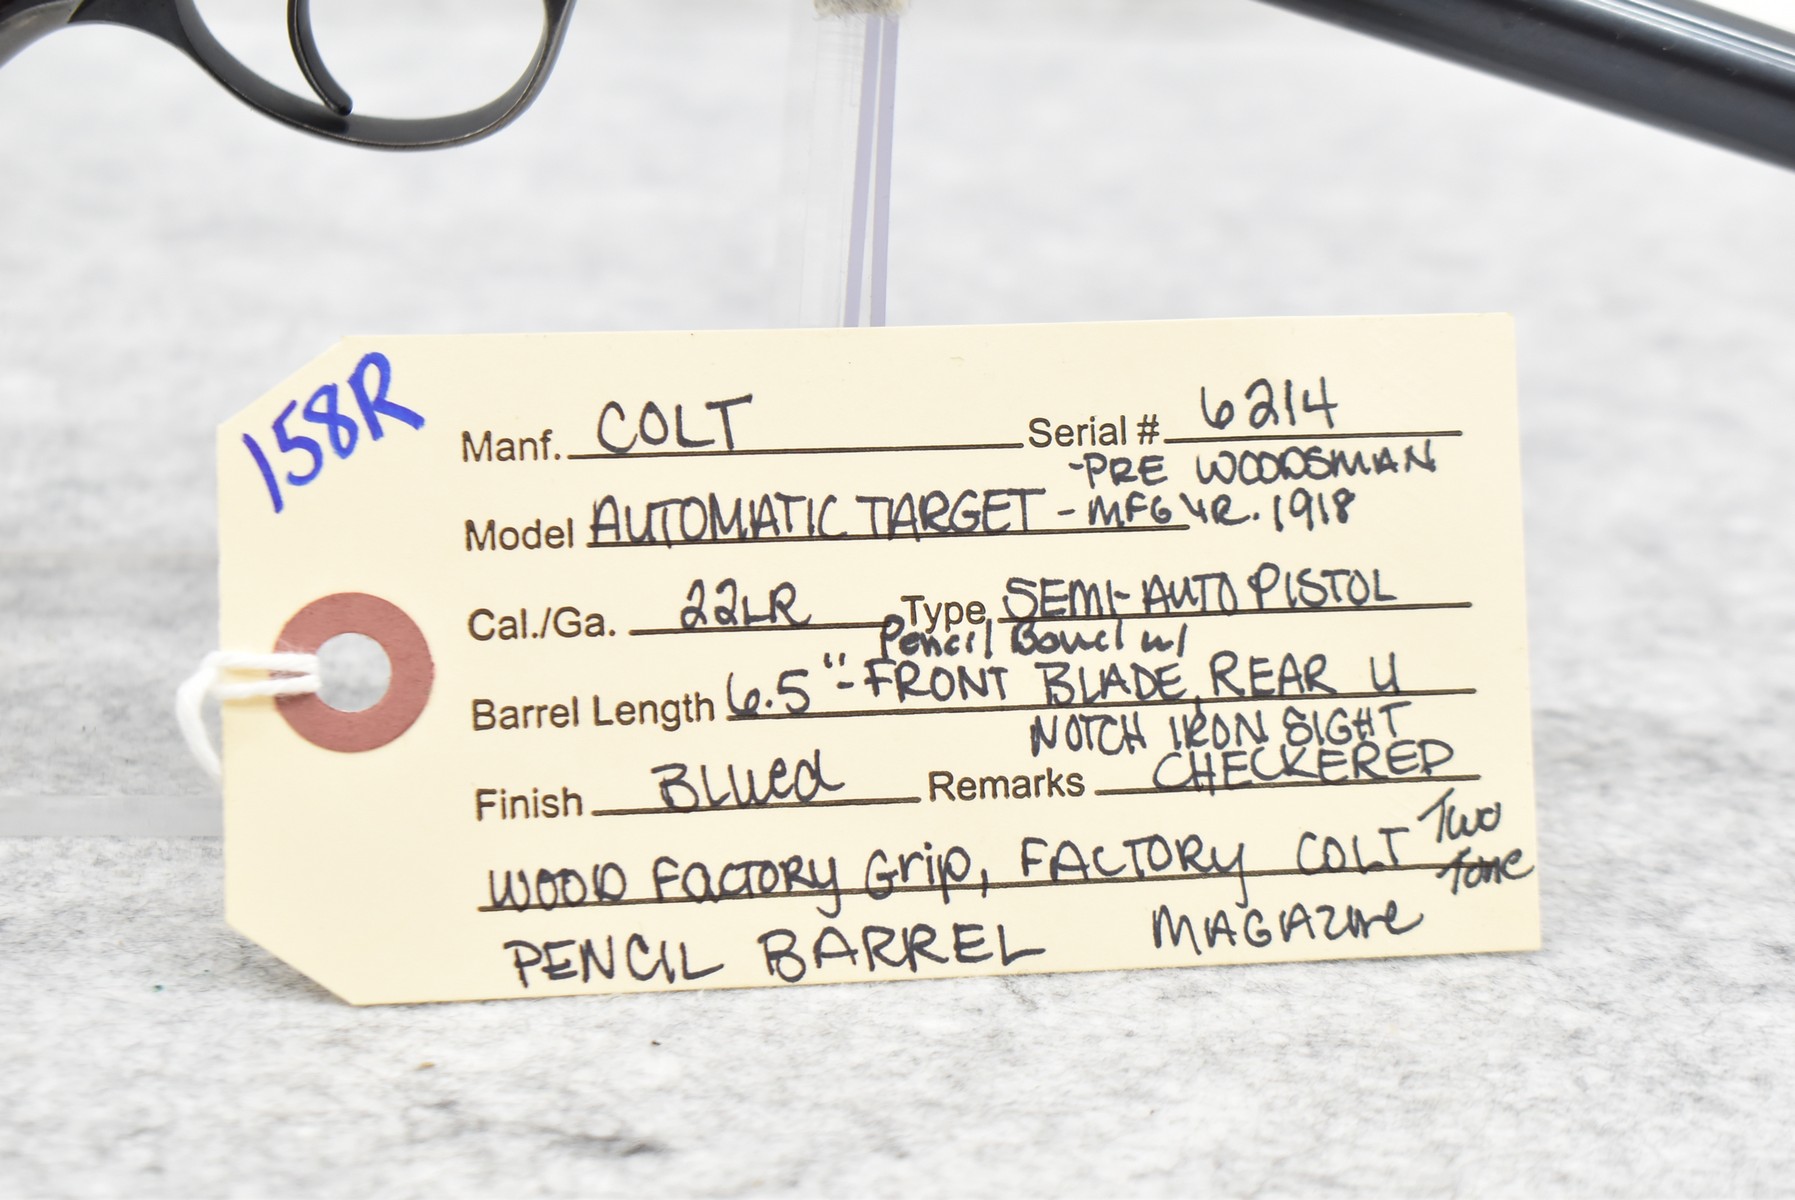 158R
Manf. COLT Serial # 6214
-PRE WOODSMAN
Model AUTOMATIC TARGET - MFG YR. 1918
Cal./Ga. 22LR Type SEMI-AUTO PISTOL
Pencil w/
Barrel Length 6.5" - FRONT BLADE, REAR U
NOTCH IRON SIGHT
Finish BLUED Remarks CHECKERED
WOOD FACTORY Grip, FACTORY COLT Two Tone
PENCIL BARREL MAGAZINE